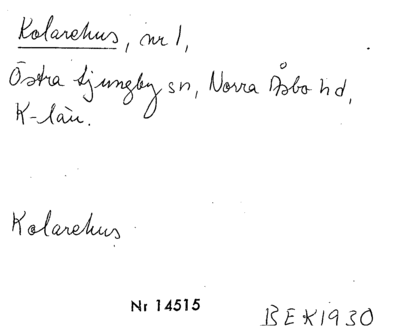 Kolarehus, nr 1,
Östra Ljungby sn, Norra Åsbo hd,
K-län.
Kolarehus
Nr 14515
BEK1930